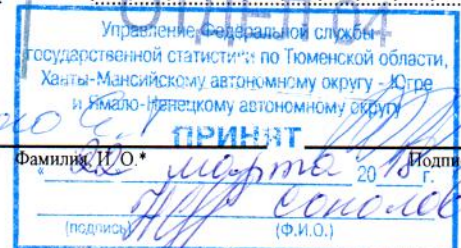 ОТДЕЛ 04
Управление Федеральной службы
государственной статистики по Тюменской области,
Ханты-Мансийскому автономному округу - Югре
и Ямало-Ненецкому автономному округу
ПРИНЯТ
Фамилия, И.О.*
« 22 марта 2018 г.
(подпись) (Ф.И.О.)